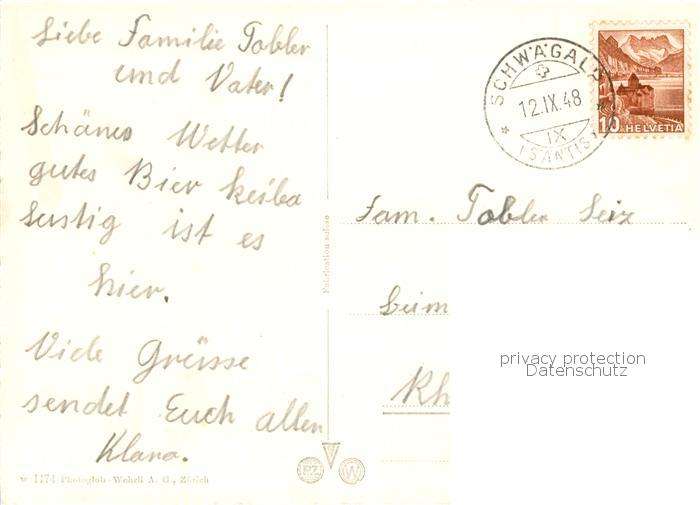 Liebe Familie Tobler
und Vater!
Schönes Wetter
gutes Bier keiba
lustig ist es
hier.
Viele Grüsse
sendet Euch allen
Klara.
1174 Photoglob-Wehrli A. G., Zürich
Fabrication suisse
PZ W
SCHWÄGALP
12.IX.48
IX
(SÄNTIS)
10 HELVETIA
Fam. Tobler
beim
Rh
privacy protection
Datenschutz